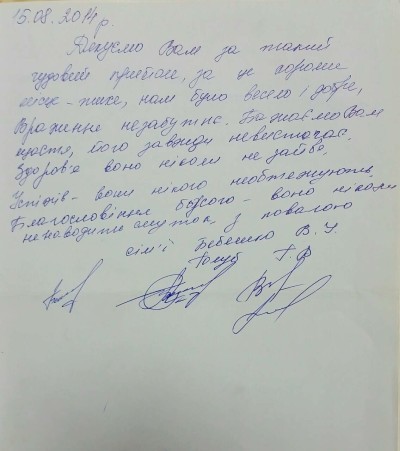 15.08.2014 р.
Дякуємо Вам за такий
чудовий прийом, за це хороше
нам було весело і добре,
Враження незабутнє. Бажаємо Вам
щастя, його завжди невистачає.
Здоров'я воно ніколи не зайве.
Успіхів - вони нікого необтяжують.
Благословіння Божого - воно ніколи
ненаводить смуток з повагою
сім'ї Бебешко В. У
Голуб Г. В